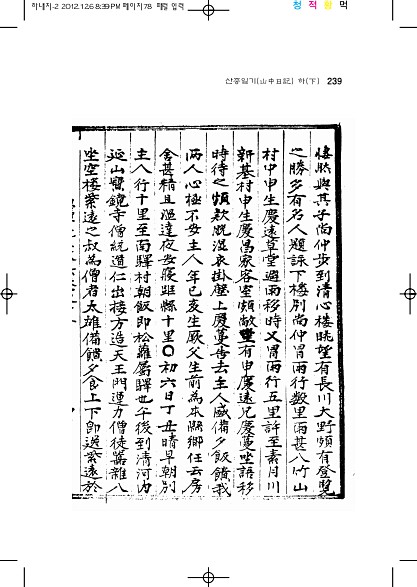 하내지-2 2012.12.6 8:39 PM 페이지78 페럴 입력
청 적 황 먹
산중일기(山中日記) 하(下) 239
悽然與其子尚仲步到清心樓眺望有長川大野頗有登覽
之勝多有名人題詠下樓別尚仲冒雨行数里雨甚入竹山
村中申生慶遠草堂避雨移時又冒雨行五里許至素月川
新基村申生慶昌家客室頗敞有申慶遠兄慶蔓坐語移
時待之頗欵脱濕衣掛壁上慶蔓告去主人盛備夕飯饋我
两人心極不安主人年己亥生厥父生前為本縣鄉任云房
舍甚精且温達夜安寢距縣十里〇初六日丁丑晴早朝別
主人行十里至両驛村朝飯即松蘿屬驛也午後到清河内
延山寶鏡寺僧統道仁出接方造天王門運力僧徒嚣雜入
坐空樓紫遠之叔為僧者太雄備饋夕食上下即送紫遠於